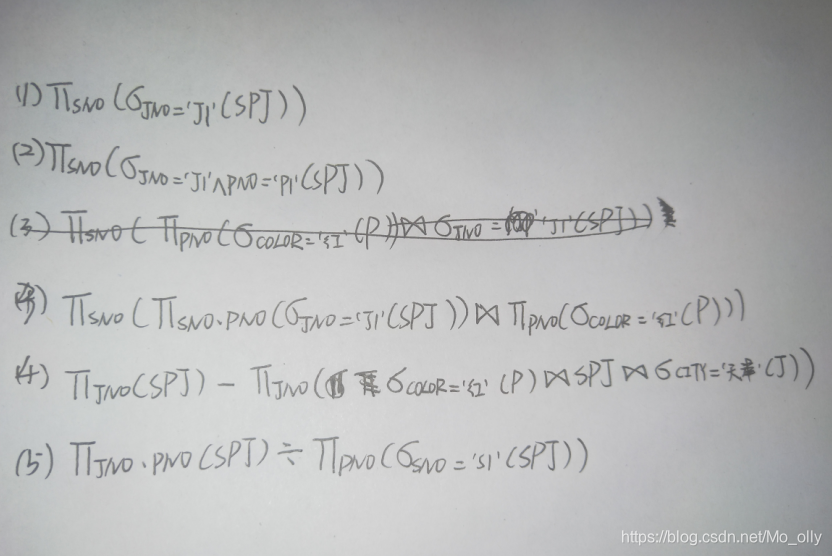 (1) ΠSNO(σJNO='J1'(SPJ))
(2) ΠSNO(σJNO='J1'∧PNO='P1'(SPJ))
(3) ΠSNO(ΠPNO(σCOLOR='红'(P))⋈σJNO='J1'(SPJ))
ΠSNO(ΠSNO.PNO(σJNO='J1'(SPJ))⋈ΠPNO(σCOLOR='红'(P)))
(4) ΠJNO(SPJ) - ΠJNO(σCOLOR='红'(P)⋈SPJ⋈σCITY='天津'(J))
(5) ΠJNO.PNO(SPJ)÷ΠPNO(σSNO='S1'(SPJ))
https://blog.csdn.net/Mo_olly